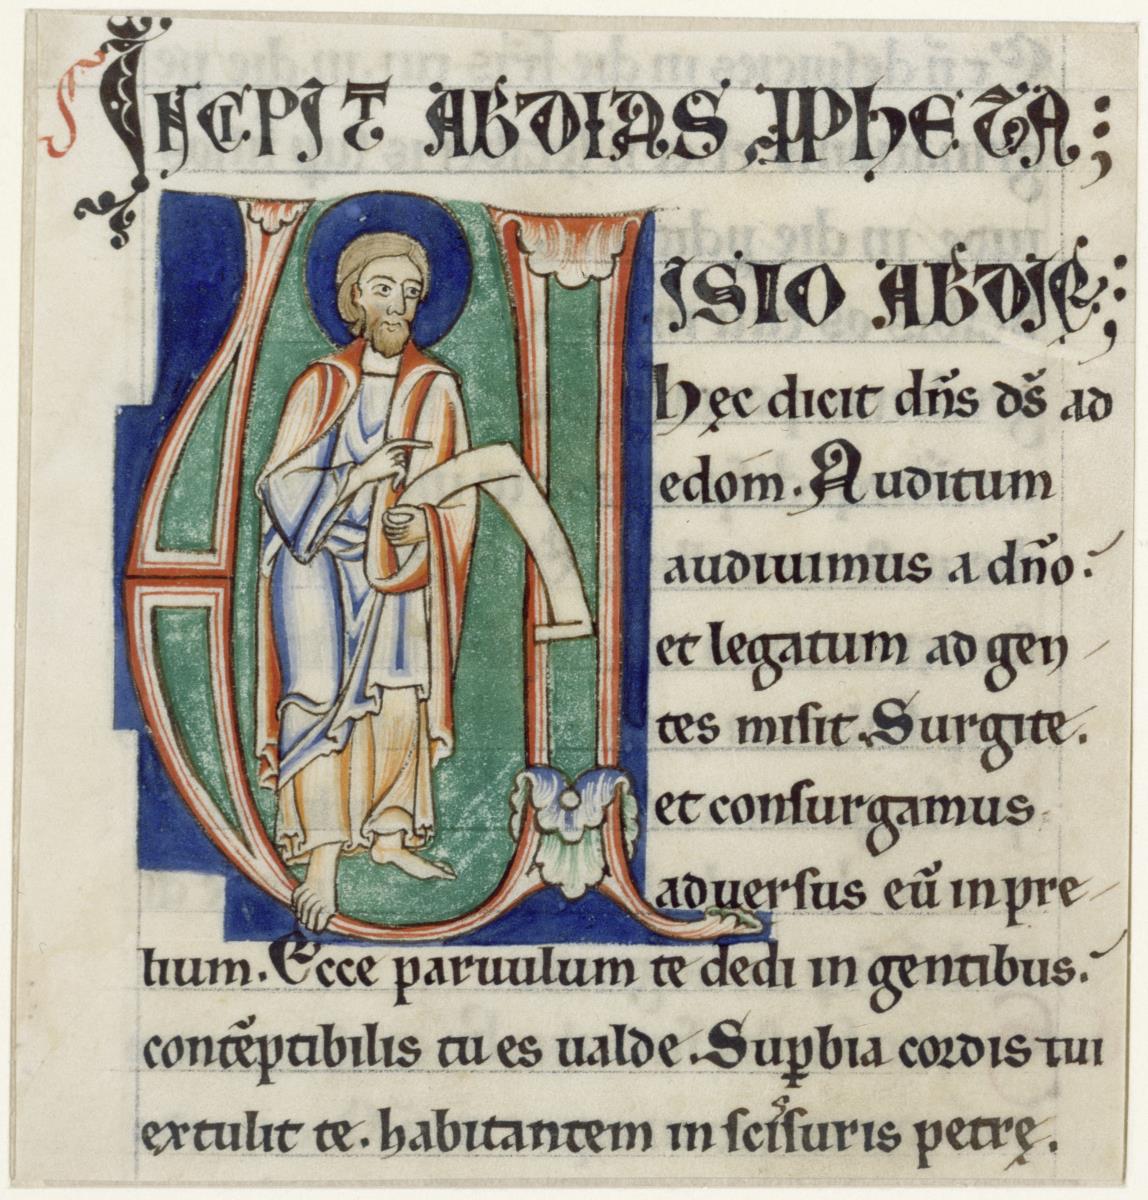 Incipit Abdias ppheta;
Visio Abdię;
hęc dicit dn̄s ds̄ ad
edom. Auditum
audiuimus a dn̄o:
et legatum ad gen
tes misit. Surgite.
et consurgamus
aduersus eū in pre
lium. Ecce paruulum te dedi in gentibus.
contēptibilis tu es ualde. Supbia cordis tui
extulit te. habitantem in scisſuris petrę.